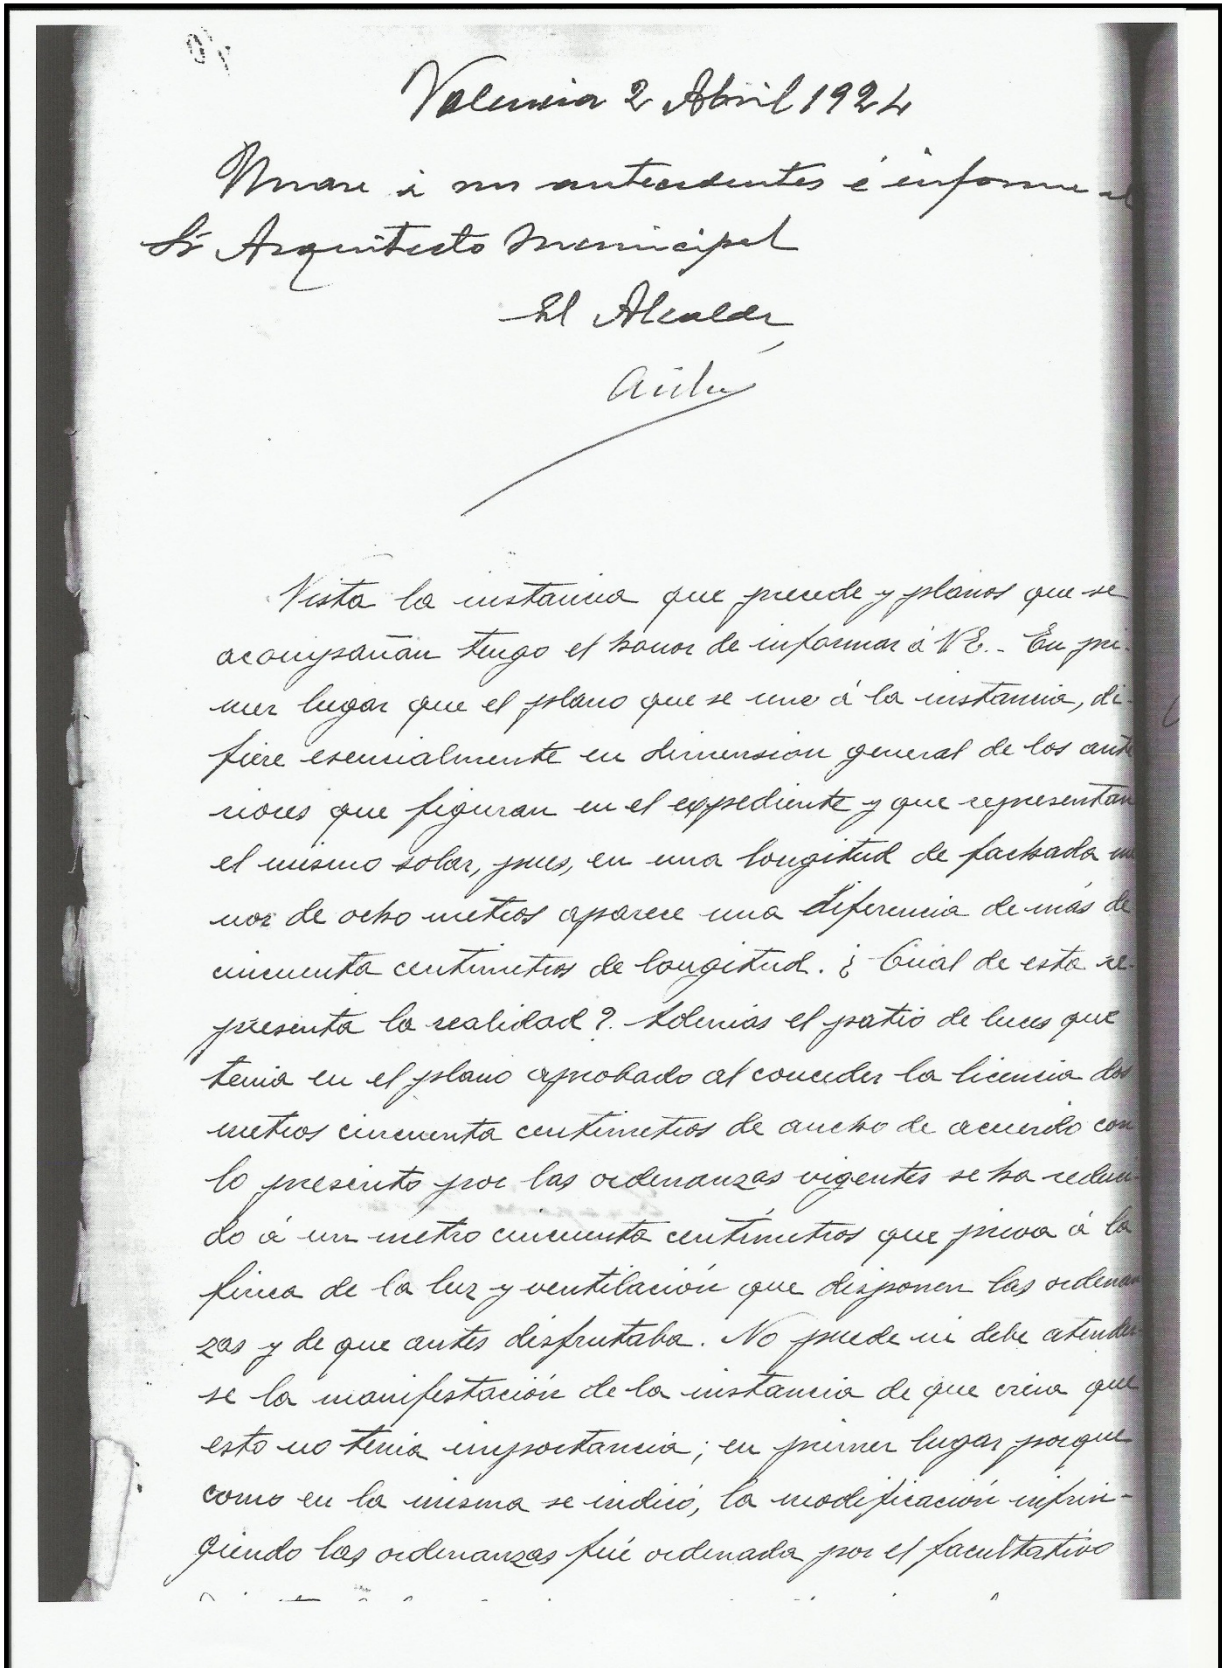 Valencia 2 Abril 1924
Unase á sus antecedentes é informe el
Sr Arquitecto Municipal
El Alcalde
Vista la instancia que precede y planos que se
acompañan tengo el honor de informar á V.E.. En pri-
mer lugar que el plano que se une á la instancia, di-
fiere esencialmente en dimension general de los ante
riores que figuran en el expediente y que representan
el mismo solar, pues, en una longitud de fachada me
nor de ocho metros aparece una diferencia de más de
cincuenta centimetros de longitud. ¿Cúal de esta re-
presenta la realidad?. Además el patio de luces que
tenia en el plano aprobado al conceder la licencia dos
metros cincuenta centimetros de ancho de acuerdo con
lo prescrito por las ordenanzas vigentes se ha reduci-
do á un metro cincuenta centimetros que priva á la
finca de la luz y ventilación que disponen las ordenan
zas y de que antes disfrutaba. No puede ni debe atender
se la manifestación de la instancia de que creia que
esto no tenia importancia; en primer lugar porque
como en la misma se indicó, la modificación infrin-
giendo las ordenanzas fué ordenada por el facultativo